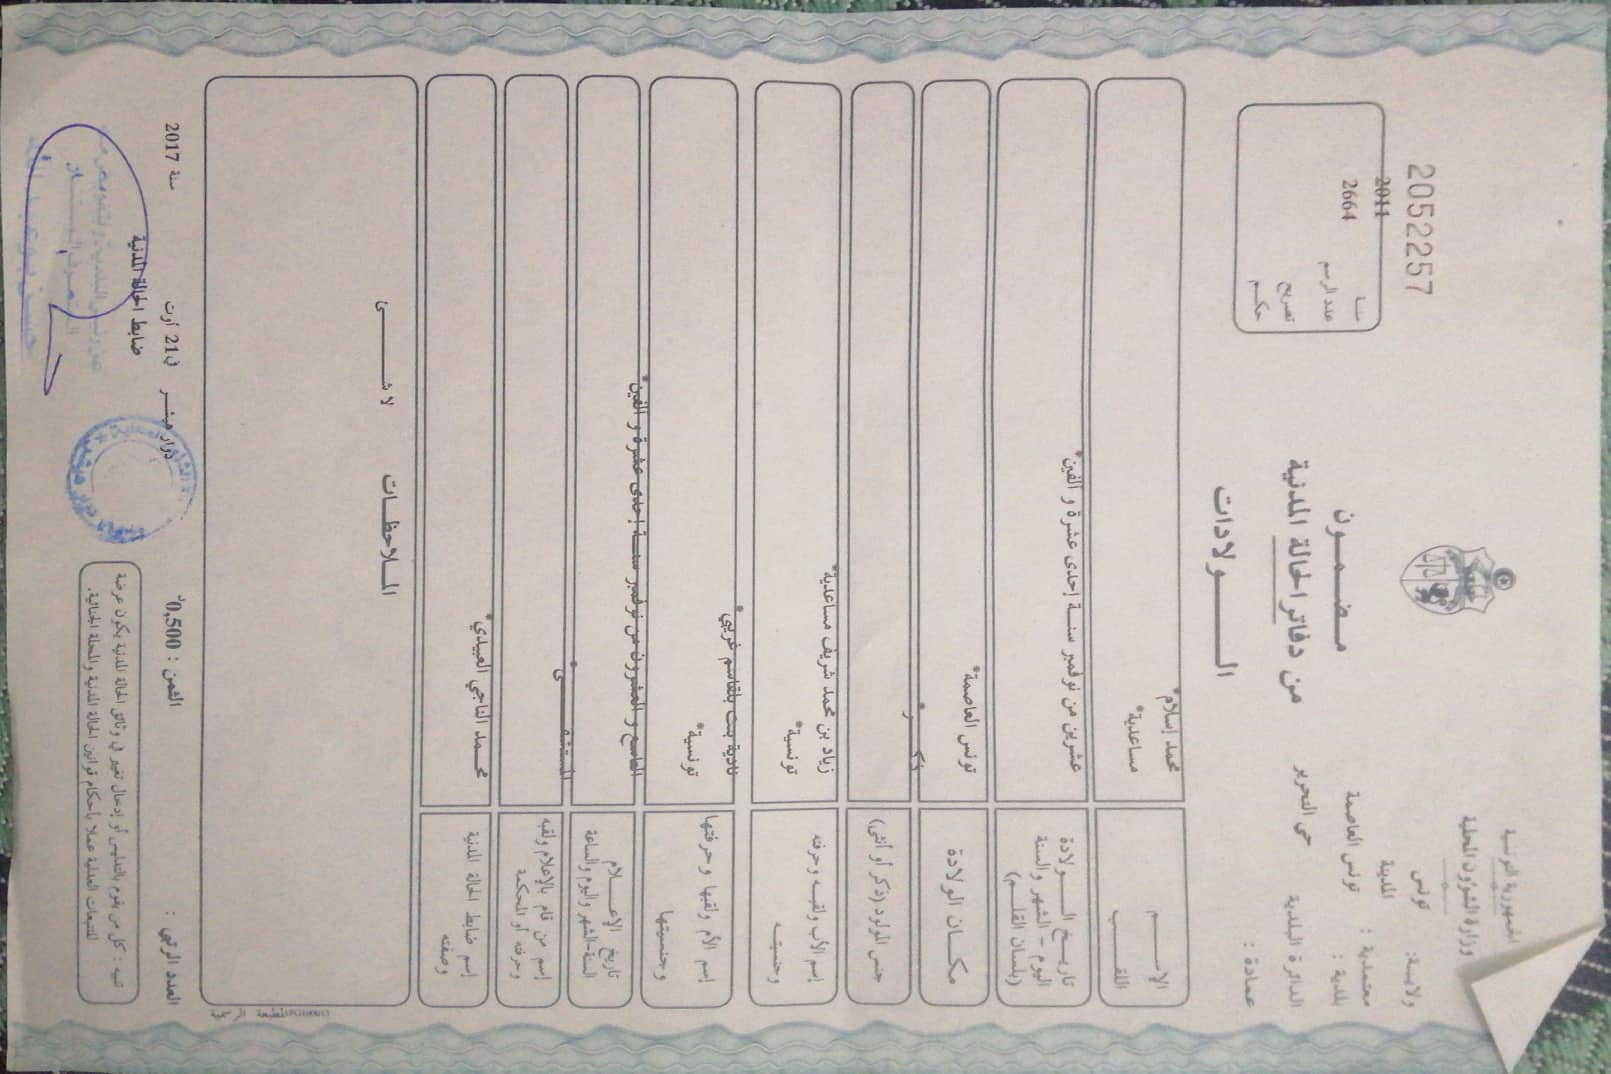 الجمهورية التونسية
وزارة الشؤون المحلية
ولاية: تونس
المدينة
معتمدية :
بلدية : تونس العاصمة
الدائرة البلدية حي التحرير
عمادة :
2052257
سنة 2011
عدد الرسم 2664
تصريح
حكم
مضمون
من دفاتر الحالة المدنية
الولادات
الاسم محمد إسلام*
اللقب مساعدية*
تاريخ الولادة
اليوم - الشهر والسنة
(بلسان القلم)
عشرين من نوفمبر سنة إحدى عشرة و ألفين*
مكان الولادة تونس العاصمة*
جنس المولود (ذكر أو أنثى) ذكر*
إسم الأب ولقبه وحرفته زياد بن محمد شريف مساعدية*
وجنسيته تونسية*
إسم الأم ولقبها وحرفتها نادية بنت بلقاسم غريبي*
وجنسيتها تونسية*
تاريخ الإعلام
السنة-الشهر واليوم والساعة
التاسع و العشرون من نوفمبر سنة إحدى عشرة و ألفين*
إسم من قام بالإعلام ولقبه
وحرفته أو المحكمة
المستشفى*
إسم ضابط الحالة المدنية
وصفته
محمد الناجي العبيدي*
الملاحظات لا شئ
المطبعة الرسمية
العدد الرتبي : الثمن : 0,500د
دوار هيشر في 21 أوت سنة 2017
ضابط الحالة المدنية
تنبيه : كل من يقوم بالتدليس أو إدخال تغيير في وثائق الحالة المدنية يكون عرضة
للتتبعات العدلية عملا بأحكام قوانين الحالة المدنية والمجلة الجنائية.